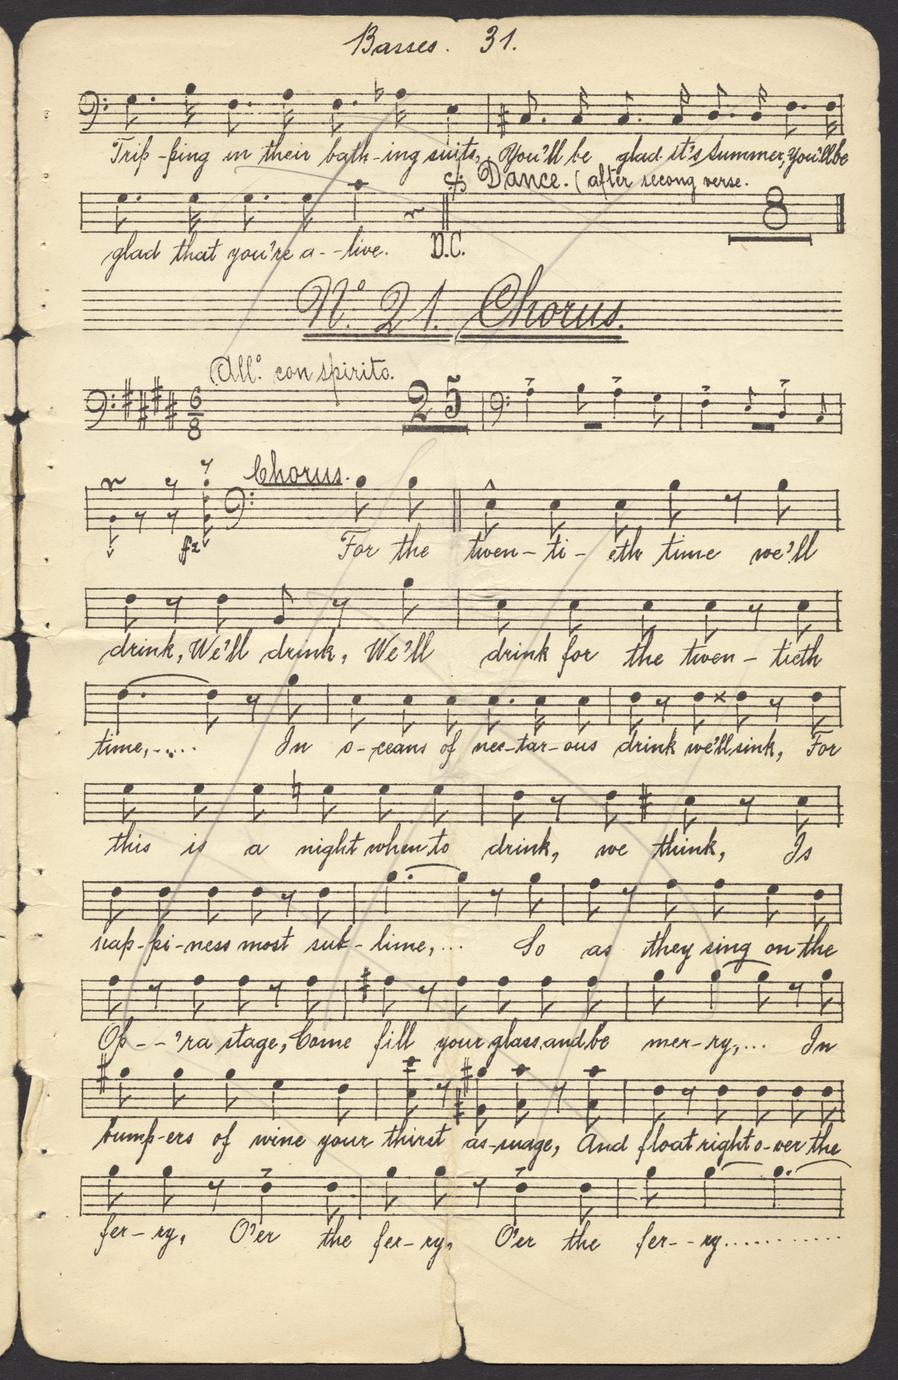 Basses. 31.
Trip-ping in their bath-ing suits, You'll be glad it's summer, you'll be
Dance. (after secong verse.
8
glad that you're a--live. D.C.
No. 21. Chorus.
All.o con spirito.
6
8
25
Chorus.
fz
For the twen-ti-eth time we'll
drink, We'll drink, We'll drink for the twen-tieth
time,..... In o-ceans of nec-tar-ous drink we'll sink, For
this is a night when to drink, we think, Is
hap-pi-ness most sub-lime,... So as they sing on the
Op--'ra stage, Come fill your glass and be mer-ry,... In
bump-ers of wine your thirst as-suage, And float right o-ver the
fer-ry, O'er the fer-ry, O'er the fer--ry............